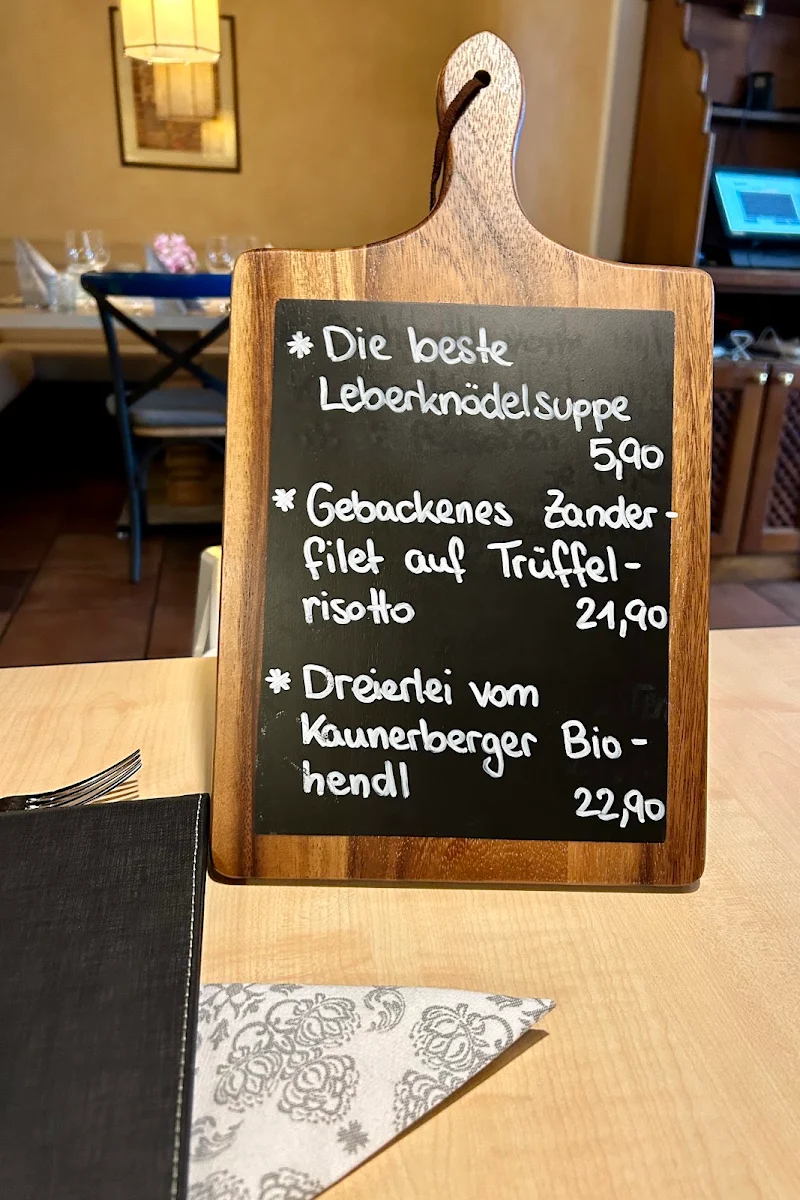 * Die beste
Leberknödelsuppe
5,90
* Gebackenes Zander-
filet auf Trüffel-
risotto 21,90
* Dreierlei vom
Kaunerberger Bio-
hendl
22,90